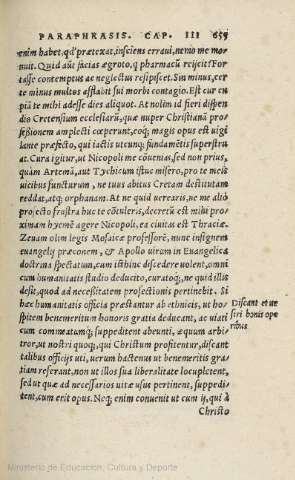 PARAPHRASIS. CAP. III 659
enim habet, qđ prætexat, insciens erraui, nemo me mo
nuit. Quid aūt facias ægroto, q̃ pharmacũ reijcit? For
tasse contemptus ac neglectus resipiscet. Sin minus, cer
te minus multos afflabit sui morbi contagio. Est cur cu
piā te mihi adesse dies aliquot. At nolim id fieri dispen
dio Cretensium ecclesiarũ, quæ nuper Christianā pro
fessionem amplecti cœperunt, eoq; magis opus est uigi
lante præfecto, qui iactis utcunq; fundamētis superstru
at. Cura igitur, ut Nicopoli me cōuenias, sed non prius,
quam Artemā, aut Tychicum istuc misero, pro te meis
uicibus functurum, ne tuus abitus Cretam destitutam
reddat, atq; orphanam. At ne quid uerearis, ne me aliò
profecto frustra huc te cōtuleris, decretũ est mihi pro
ximam hyemē agere Nicopoli, ea ciuitas est Thraciæ.
Zenam olim legis Mosaicæ professorē, nunc insignem
euangelij præconem, & Apollo uirum in Euangelica
doctrina spectatum, cum istinc discedere uolent, omni
cum humanitatis studio deducito, curatoq; ne quid illis
desit, quod ad necessitatem profectionis pertinebit. Si
hæc humanitatis officia præstantur ab ethnicis, ut ho
spitem benemeritum honoris gratia deducant, ac uiati
cum commeatumq; suppeditent abeunti, æquum arbi
tror, ut nostri quoq;, qui Christum profitentur, discant
talibus officijs uti, uerum hactenus ut benemeritis gra
tiam referant, non ut illos sua liberalitate locupletent,
sed ut quæ ad necessarios uitæ usus pertinent, suppedi
tent, cum erit opus. Neq; enim conuenit ut cum ij, qui à
Christo
Discant et ne
stri bonis ope
ribus
Ministerio de Educación, Cultura y Deporte